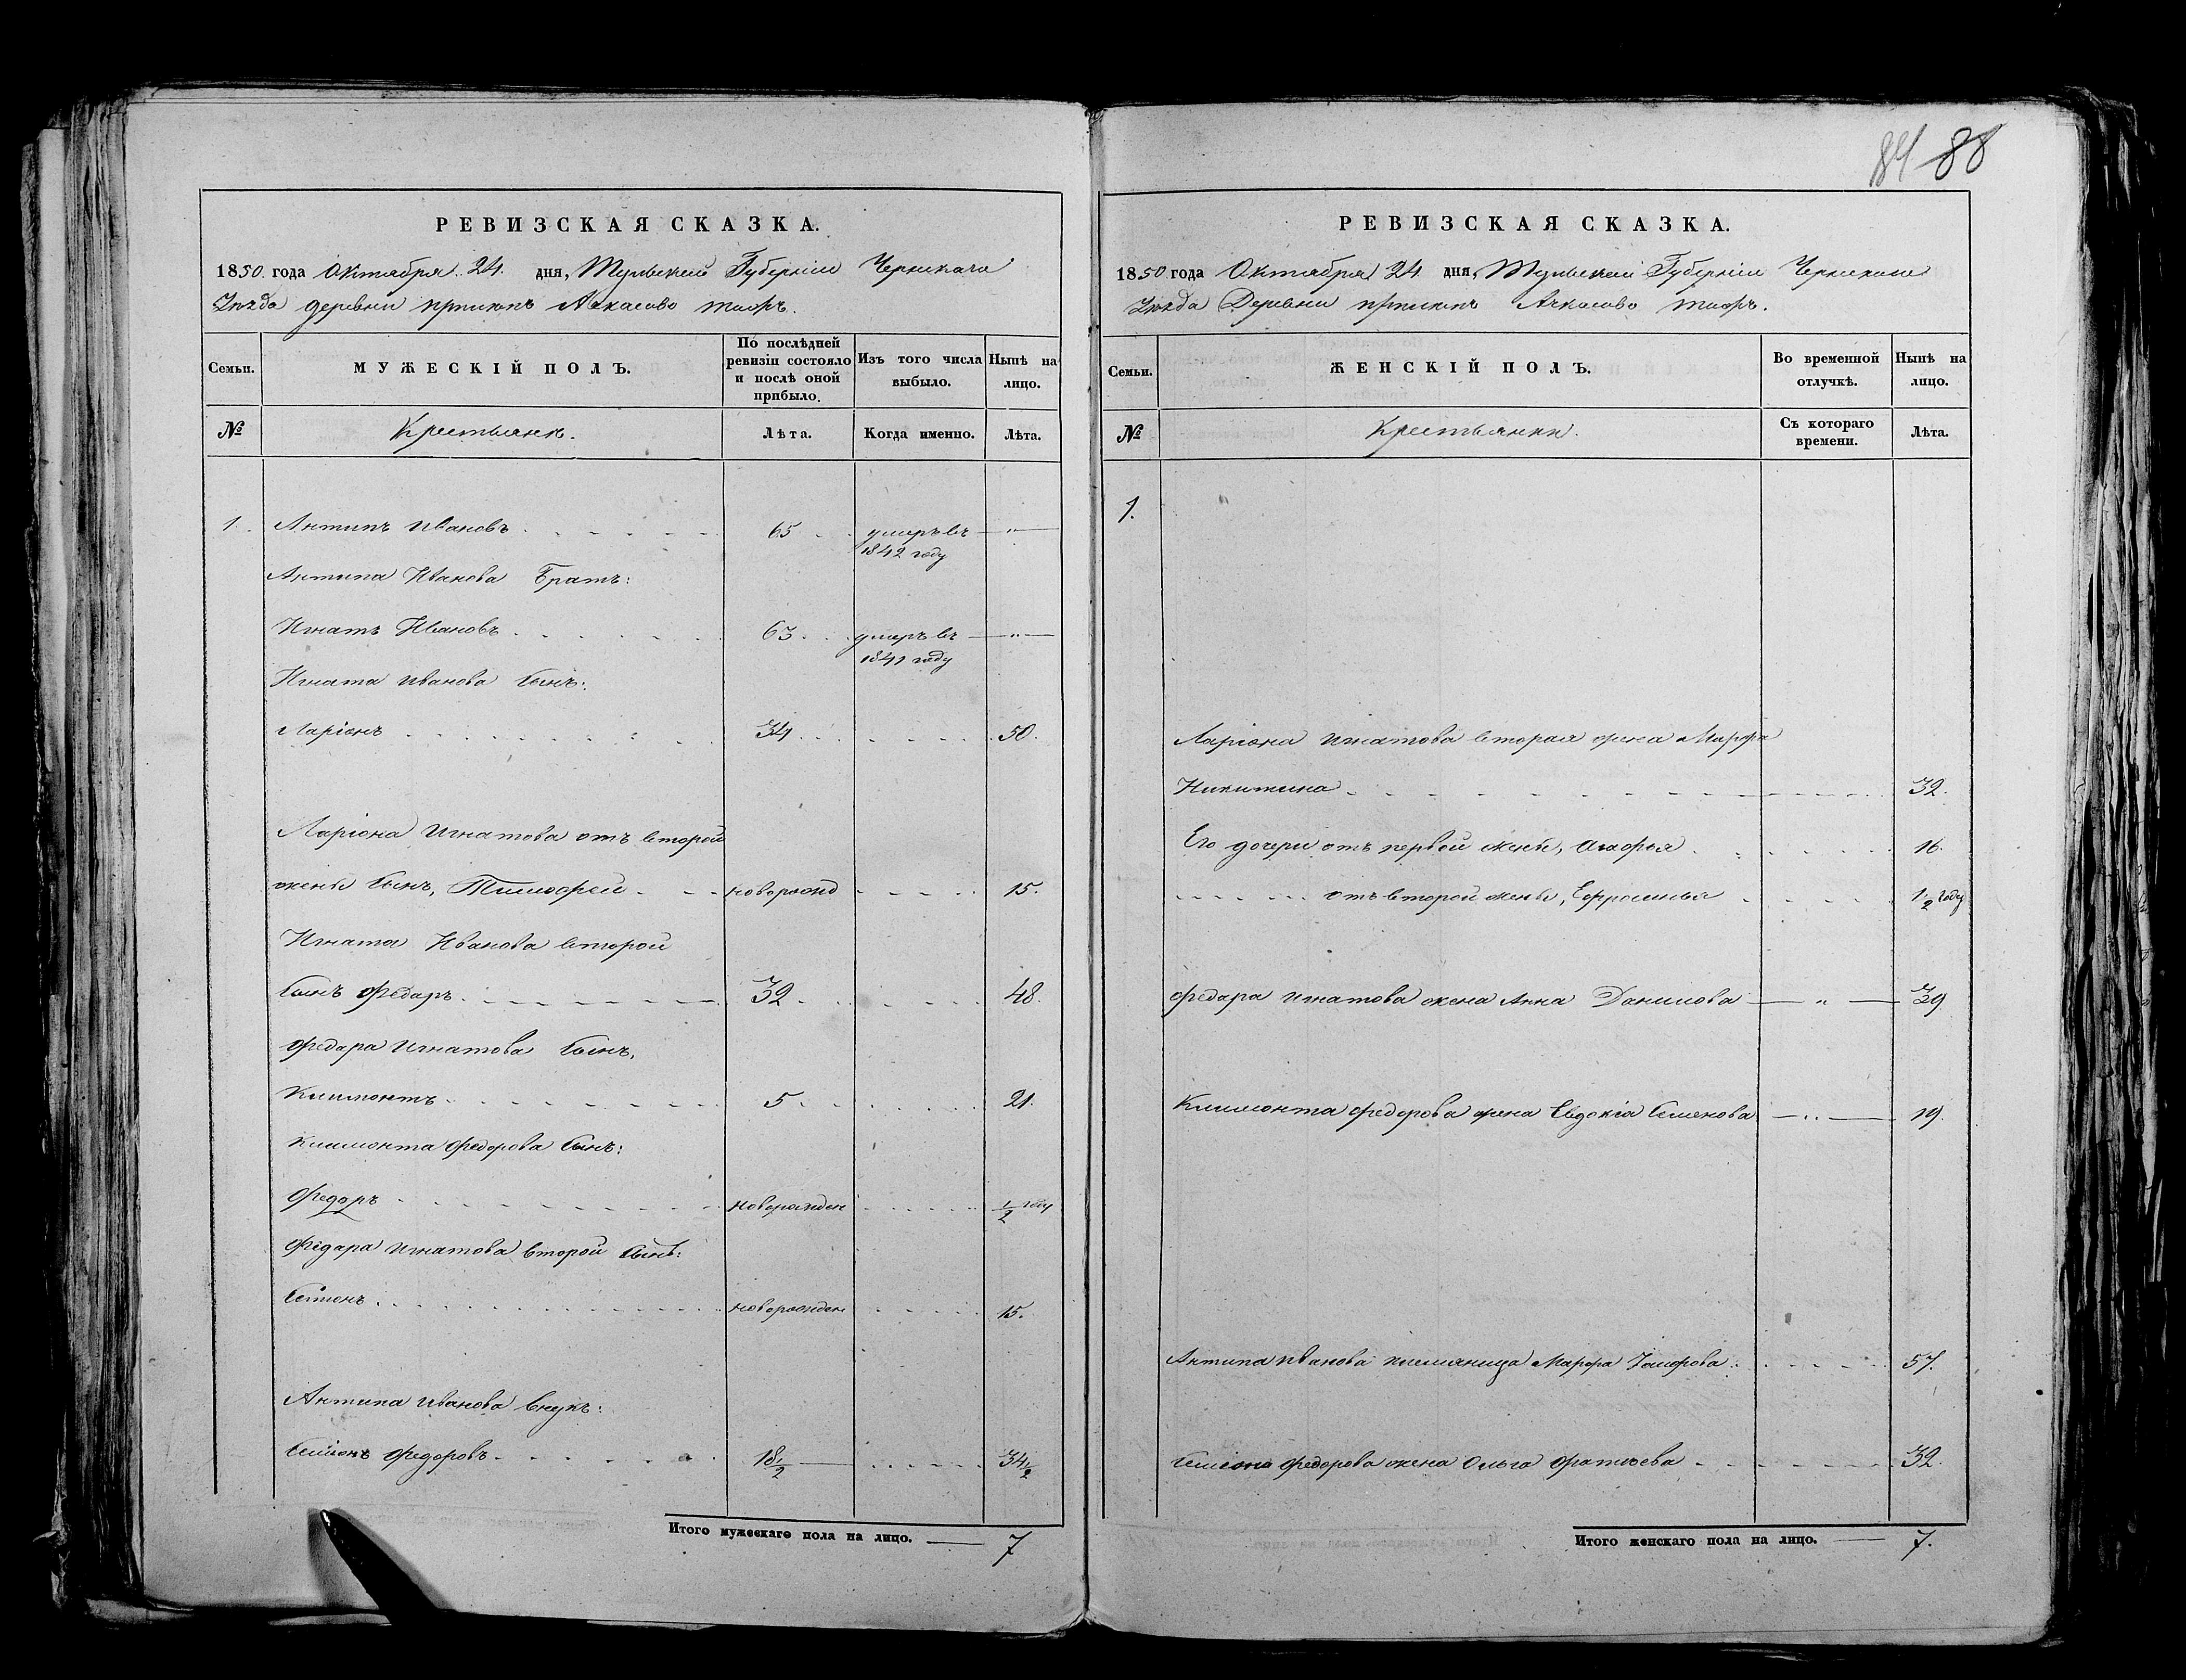 84 88
РЕВИЗСКАЯ СКАЗКА.
1850. года Октября 24. дня, Тульской Губерніи Чернскаго
Уезда деревни Ачкасово тиожъ.
Семьи.
МУЖЕСКІЙ ПОЛЪ.
По послѣдней ревизіи состояло и послѣ оной прибыло.
Изъ того числа выбыло.
Нынѣ на лицо.
№
Крестьянъ.
Лѣта.
Когда именно.
Лѣта.
1. Антипъ Ивановъ 65 умеръ въ 1842 году
Антипа Иванова Братъ:
Игнатъ Ивановъ 63 умеръ въ 1841 году
Игната Иванова Сынъ:
Ларіонъ 34 50.
Ларіона Игнатова отъ второй
жены Сынъ, Тимофей новорожд 15.
Игната Иванова второй
Сынъ Федаръ 32 48.
Федара Игнатова Сынъ,
Климонтъ 5 21.
Климонта Федорова Сынъ:
Федоръ новорожден 1/2 году
Федара Игнатова второй Сынъ:
Семенъ новорожден 15.
Антипа Иванова внукъ:
Семенъ Федоровъ 18 1/2 34 1/2
Итого мужескаго пола на лицо. 7
РЕВИЗСКАЯ СКАЗКА.
1850 года Октября 24 дня, Тульской Губерніи Чернскаго
Уезда Деревни Ачкасово
Семьи.
ЖЕНСКІЙ ПОЛЪ.
Во временной отлучкѣ.
Нынѣ на лицо.
№
Крестьянки.
Съ котораго времени.
Лѣта.
1.
Ларіона Игнатова вторая жена Марфа
Никитина 32.
Его дочери отъ первой жены, 16.
отъ второй жены, Ефросинья 1/2 году
Федара Игнатова жена Анна Данилова 39
Климонта Федорова жена Евдокіа Семенова 19.
Антипа Иванова племяница Марфа 57.
Семена Федорова жена Ольга 32.
Итого женскаго пола на лицо. 7.